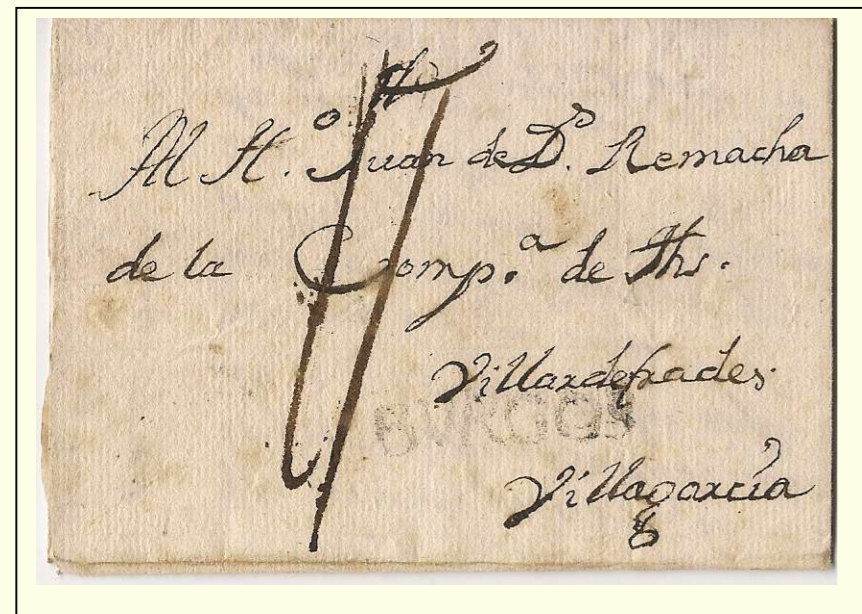 Al H.º Juan de D.ˢ Remacha
de la Comp.ª de Jhs.
Villardefrades.
BURGOS
Villagarcía